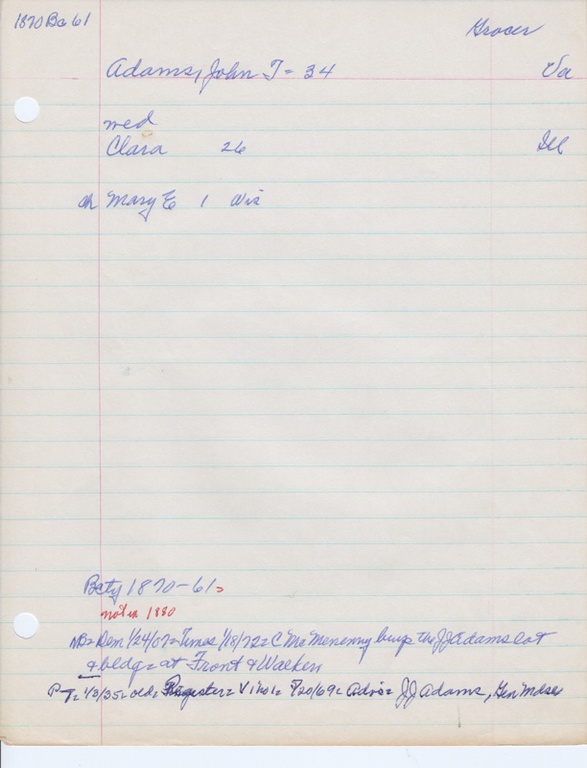 1870 Bc 61
Grocer
Adams, John T = 34 Va
wed
Clara 26 Ill
ch Mary E 1 Wis
Bcty 1870-61=
not in 1880
NB= Dem 1/24/07= Times 1/18/72= C McMenemy buys the JJ Adams lot
& bldg= at Front & Walken
P T= 1/3/35= old= Register= V 1 no 1= 7/20/69= Advs= JJ Adams, Gen Mdse